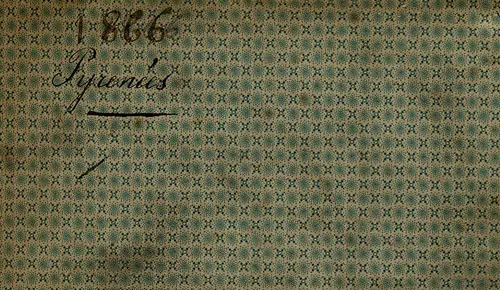 1866
Pyrenées